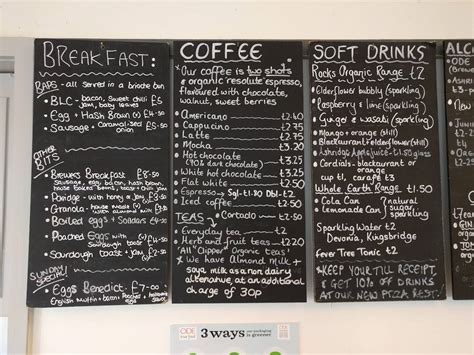 BREAKFAST:
BAPS - all served in a brioche bun
BLC - bacon, sweet chilli jam, baby leaves £5
Egg + Hash Brown £4-50
Sausage + Caramelised onion £4-50
OTHER BITS
Brewers Breakfast £8-50
Sausage, egg, bacon, hash brown,
house baked beans, toast
Porridge - with honey + jam £3-50
Granola -
Boiled eggs + Soldiers £4
Poached Eggs with Sourdough toast £4-50
SUNDAY SPECIAL
Eggs Benedict £7-00
English Muffin + bacon + Poached eggs + Hollandaise
COFFEE
* Our coffee is two shots
of organic 'resolute' espresso,
flavoured with chocolate,
walnut, sweet berries
Americano £2
Cappucino £2-40
Latte £2-40
Mocha £3-25
Hot chocolate £2-75
(70% dark chocolate)
White hot chocolate £2-75
Flat white £2-50
Espresso Sgl-£1-80 Dbl-£2
Iced coffee £2-50
TEAS Cortado - £2-50
Everyday tea £2
Herb and fruit teas £2
*All 'Clipper' Organic teas*
* We have Almond Milk +
soya milk as a non dairy
alternative, at an additional
charge of 30p
SOFT DRINKS
Rocks Organic Range £2
Elderflower bubbly (sparkling)
Raspberry & lime (sparkling)
Ginger & wasabi (sparkling)
Mango + orange (still)
Blackcurrant + elderflower (still)
Ashridge Apple juice - £1-50/glass
Cordials - blackcurrant or
orange cup £1
Whole Earth Range £1-50
Cola Can
Lemonade Can
natural sugar, sparkling
Sparkling Water £2
Devonia, Kingsbridge
Fever Tree Tonic £2
KEEP YOUR TILL RECEIPT,
GET 10% OFF DRINKS
AT OUR NEW PIZZA REST.
ALC
ODE
ODE
3 ways our packaging is greener